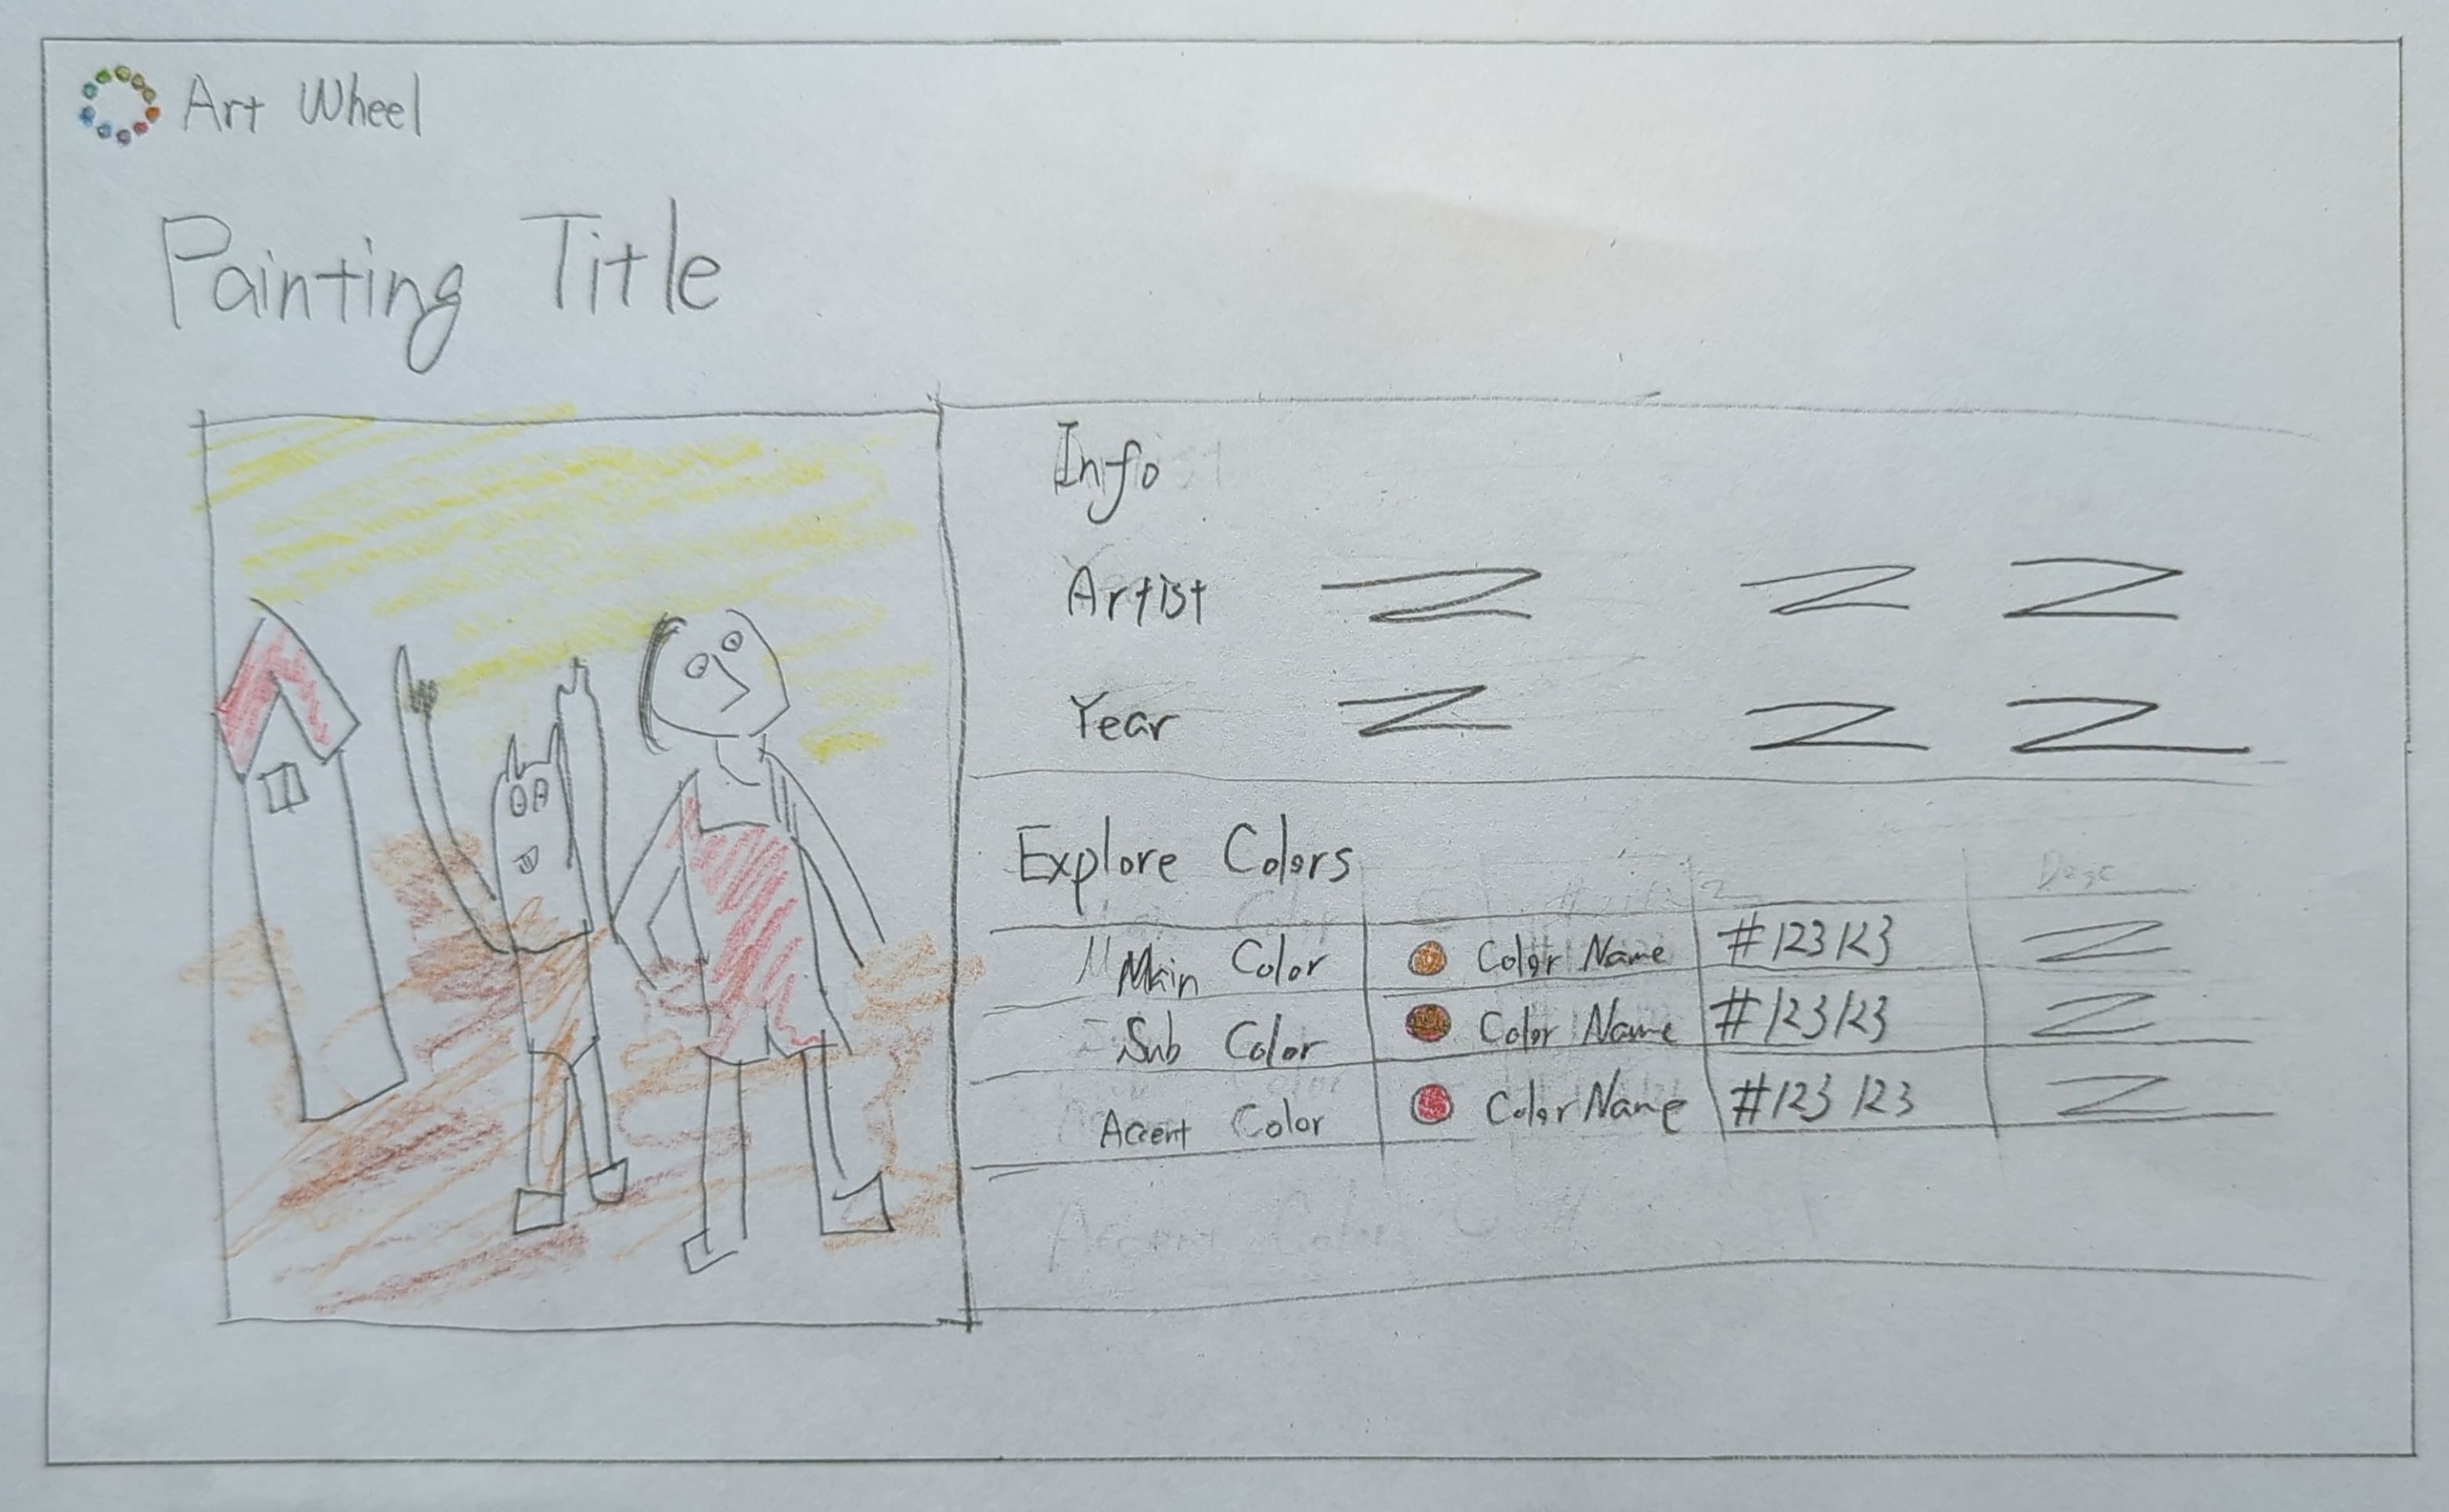 Art Wheel
Painting Title
Info
Artist
Year
Explore Colors
Desc
Main Color Color Name #123123
Sub Color Color Name #123123
Accent Color Color Name #123123
Accent Color